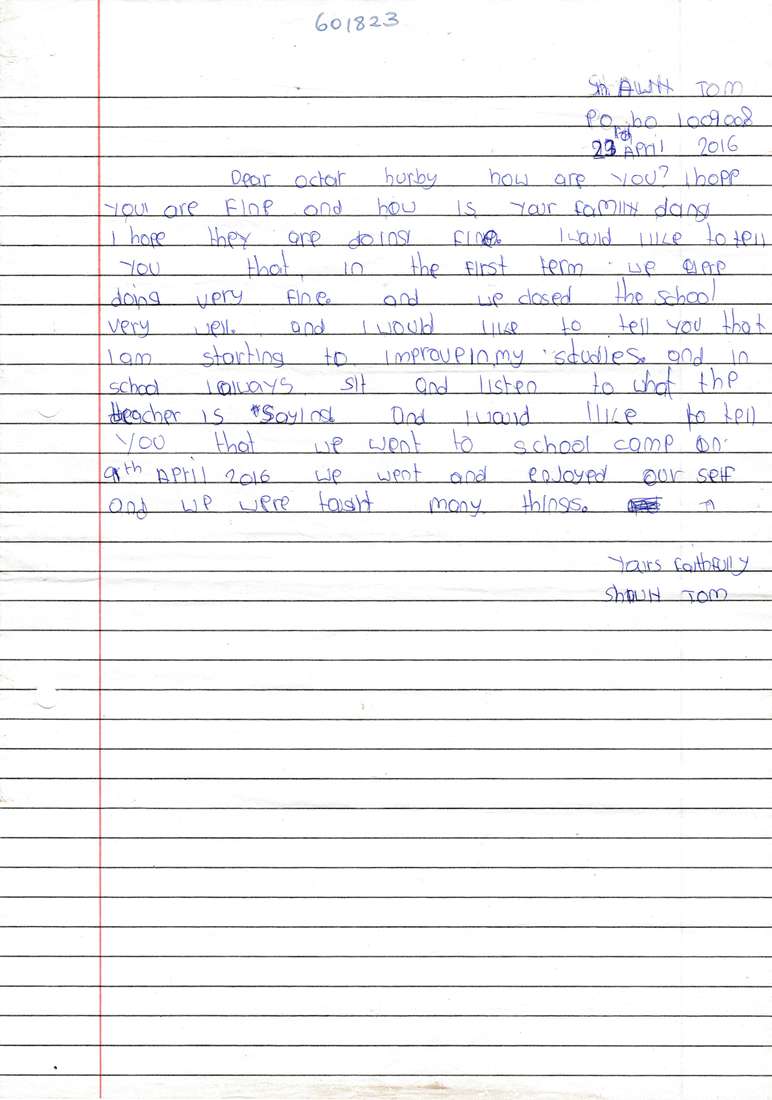 601823
SHAWN TOM
PO bo 1009008
23rd April 2016
Dear octar hurby how are you? I hope
you are fine and how is your family doing
I hope they are doing fine. I would like to tell
you that, in the first term we were
doing very fine. and we closed the school
very well. and I would like to tell you that
I am starting to improve in my studies. and in
school I always sit and listen to what the
teacher is saying and I would like to tell
you that we went to school camp on
9th April 2016 we went and enjoyed our self
and we were taught many things.
Yours faithfully
SHAUN TOM